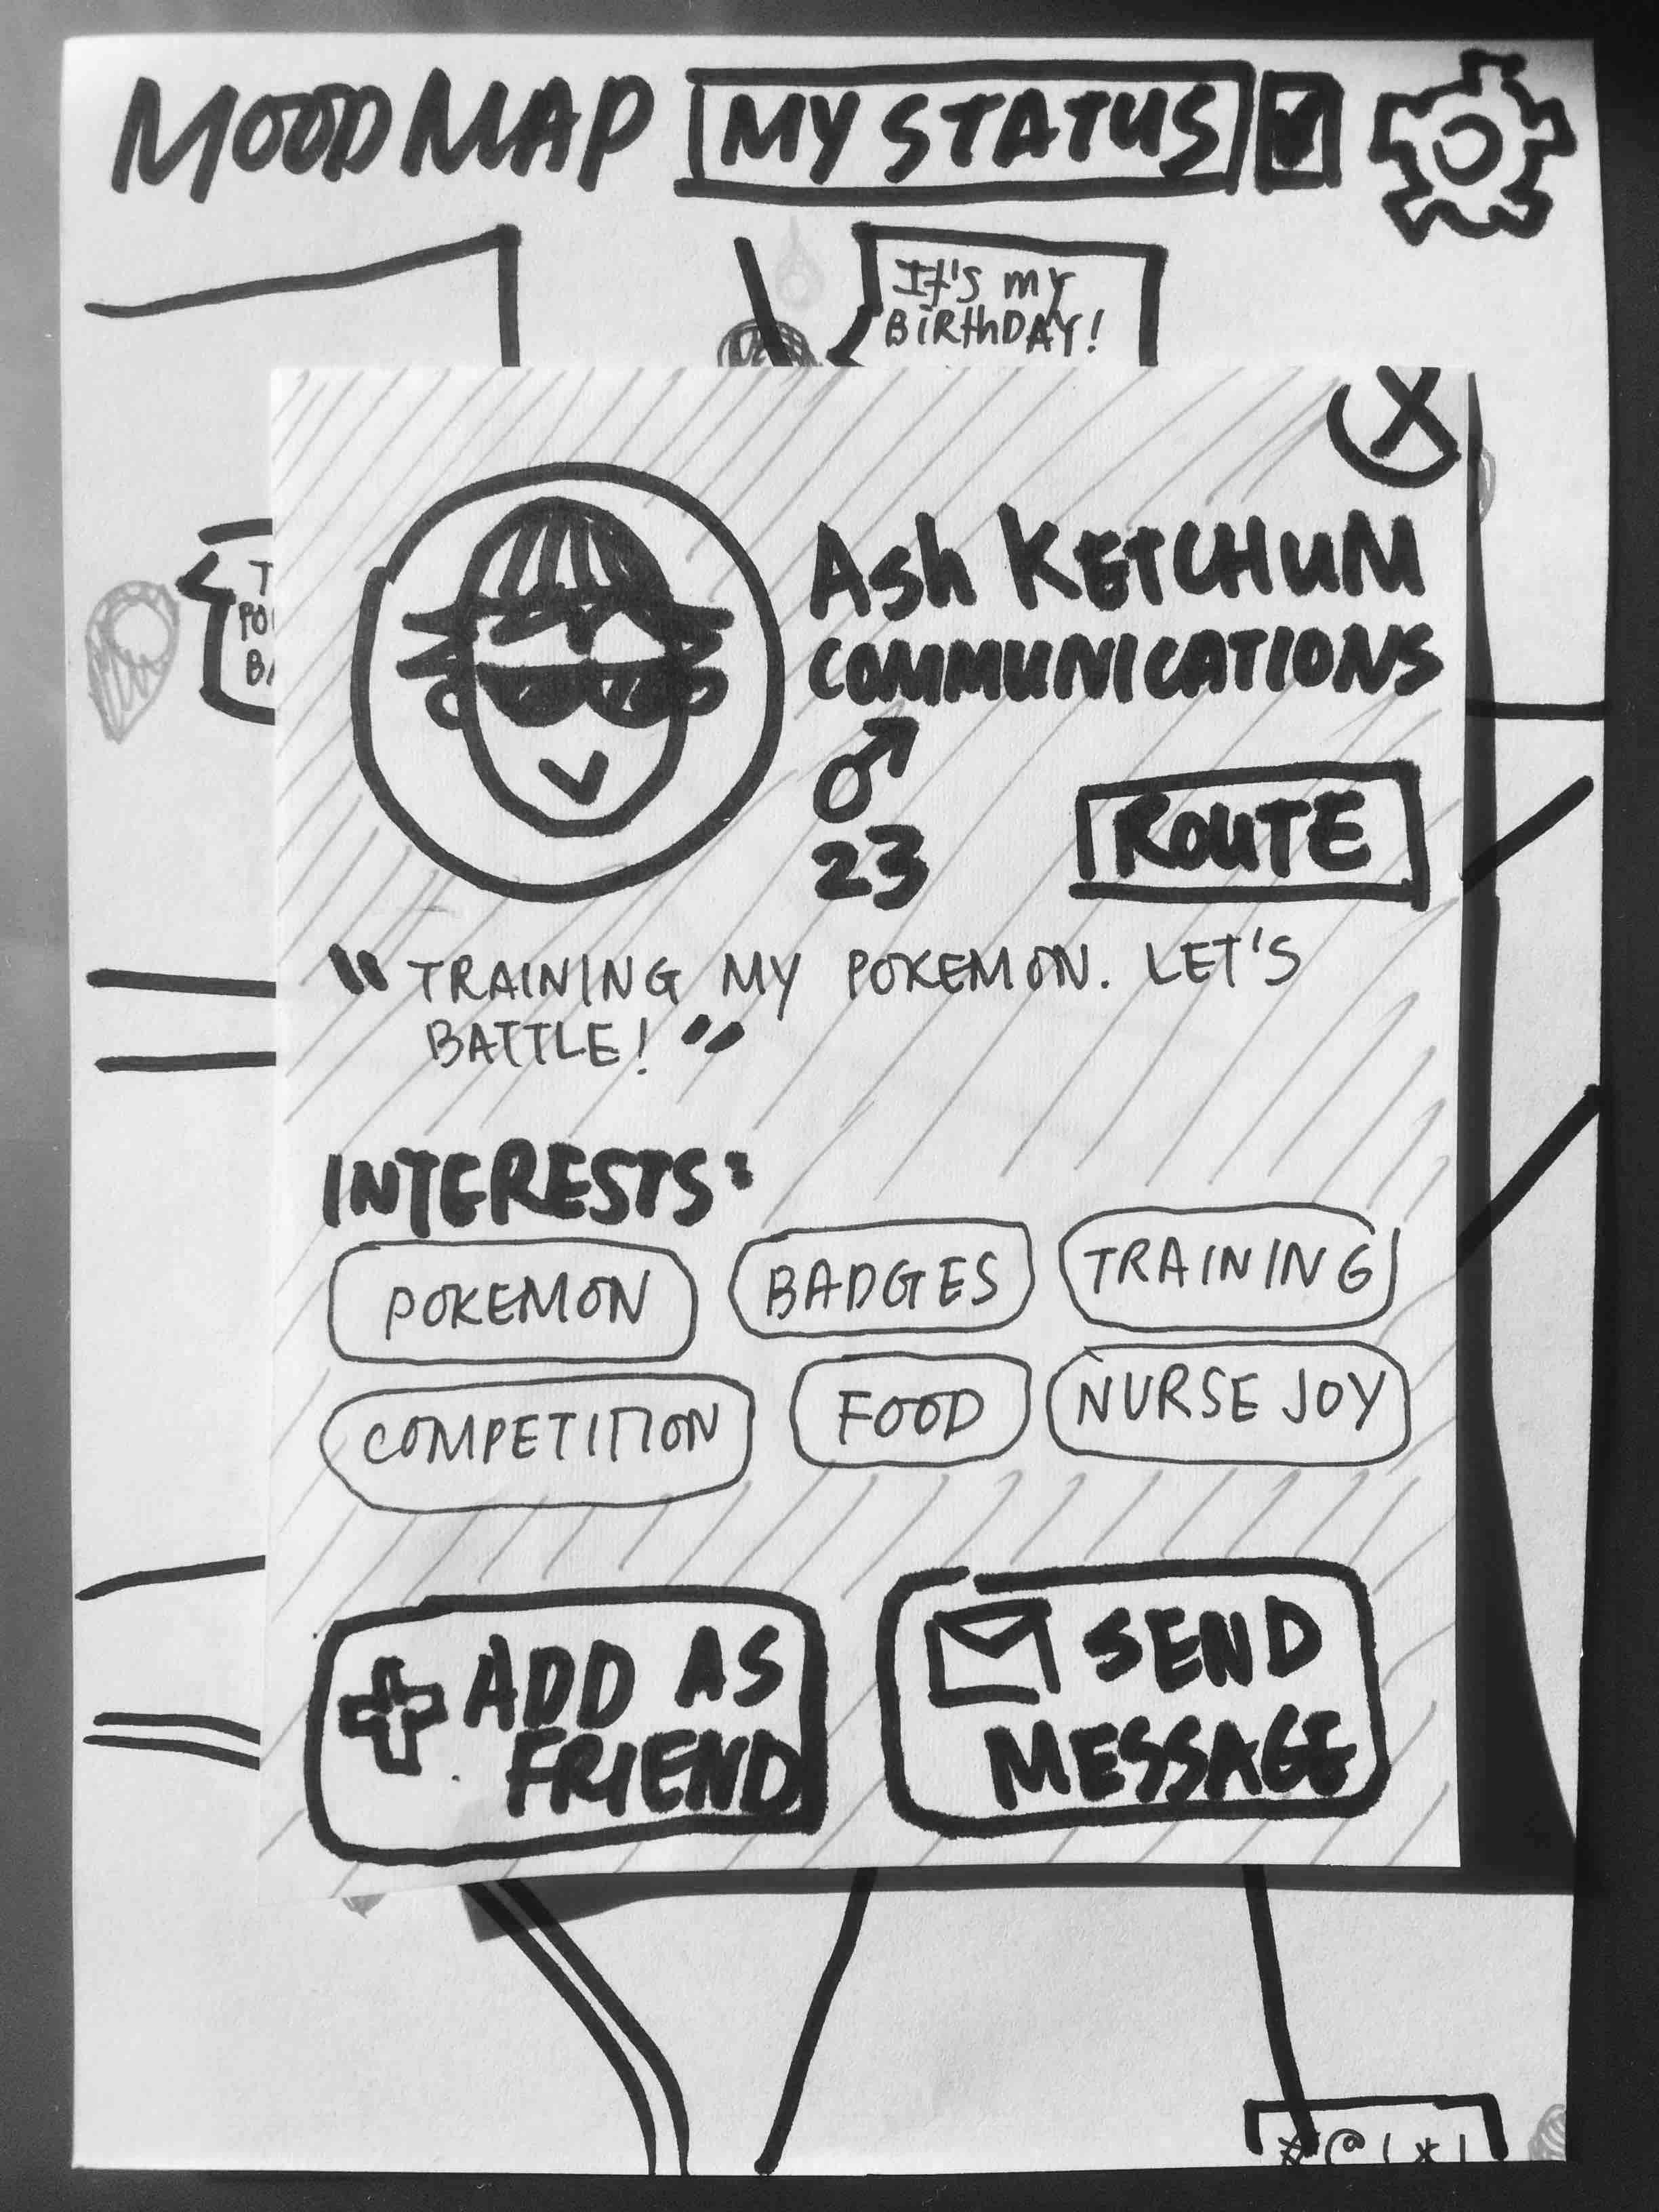 MOOD MAP MY STATUS
It's my
BirthDAY!
Ash KETCHUM
COMMUNICATIONS
♂
23
ROUTE
"TRAINING MY POKEMON. LET'S
BATTLE!"
INTERESTS:
POKEMON BADGES TRAINING
COMPETITION FOOD NURSE JOY
+ ADD AS
FRIEND
SEND
MESSAGE